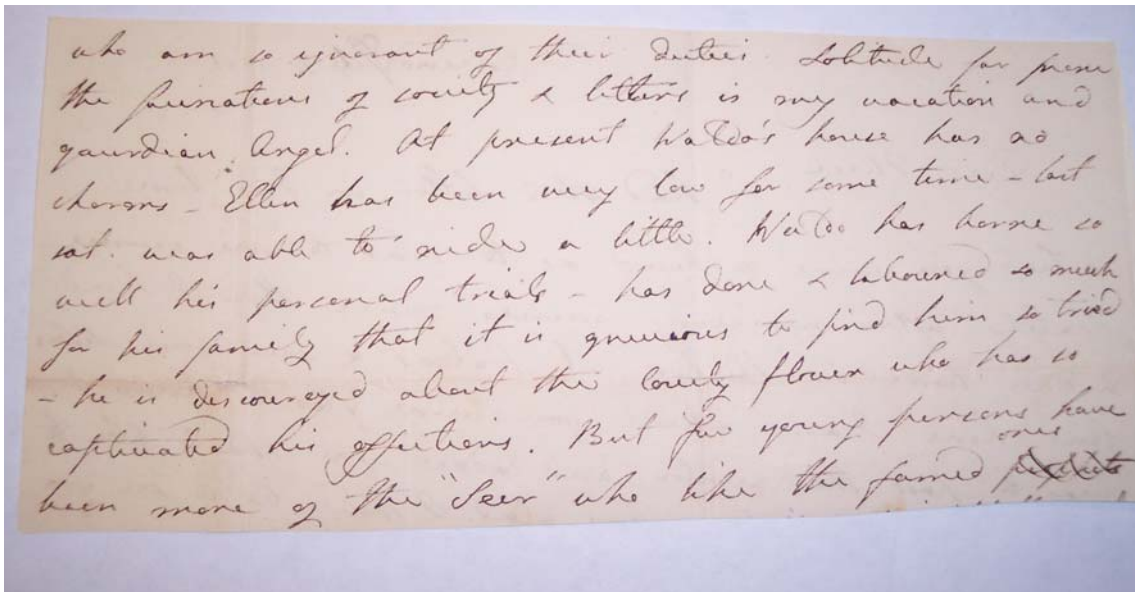 who am so ignorant of their duties. Solitude far from
the fascinations of society & letters is my vocation and
gaurdian Angel. At present Waldo's house has no
charms – Ellen has been very low for some time – last
sat. was able to ride a little. Waldo has borne so
well his personal trials – has done & laboured so much
for his family that it is grievious to find him so tried
– he is discouraged about the lovely flower who has so
captivated his affections. But few young persons have
been more of the "Seer" who like the famed ones